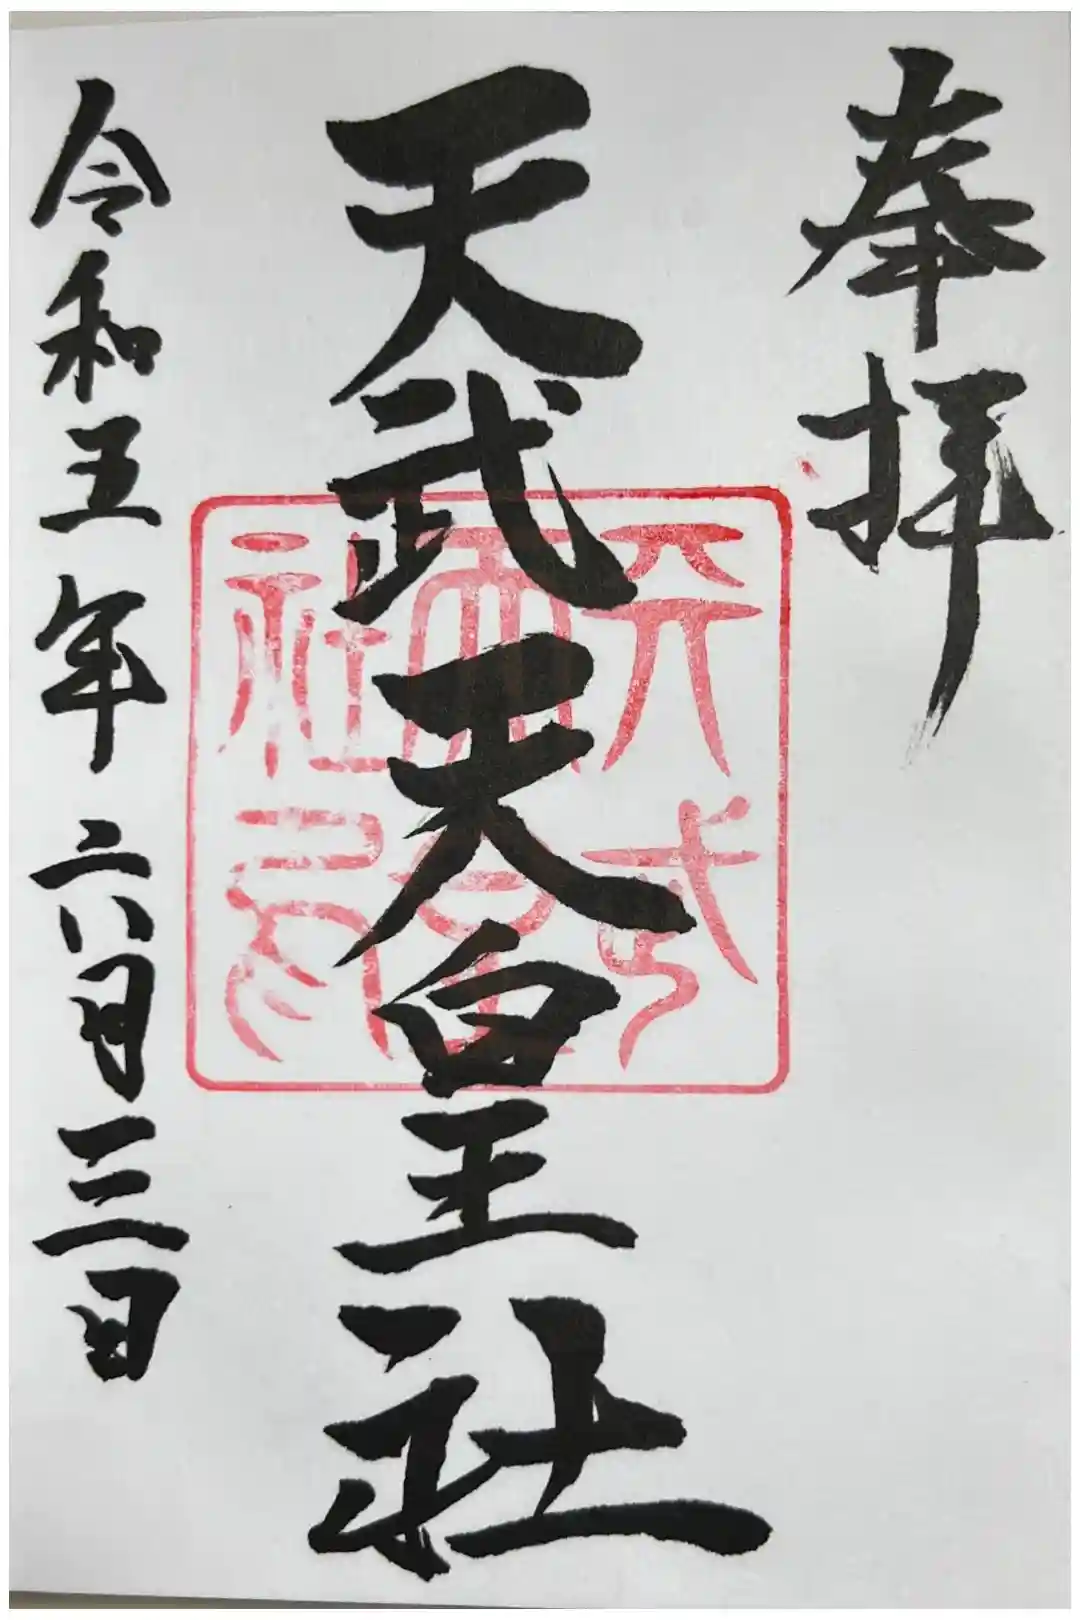 奉拝
天武天皇社
令和五年六月三日
天武
天皇
社印